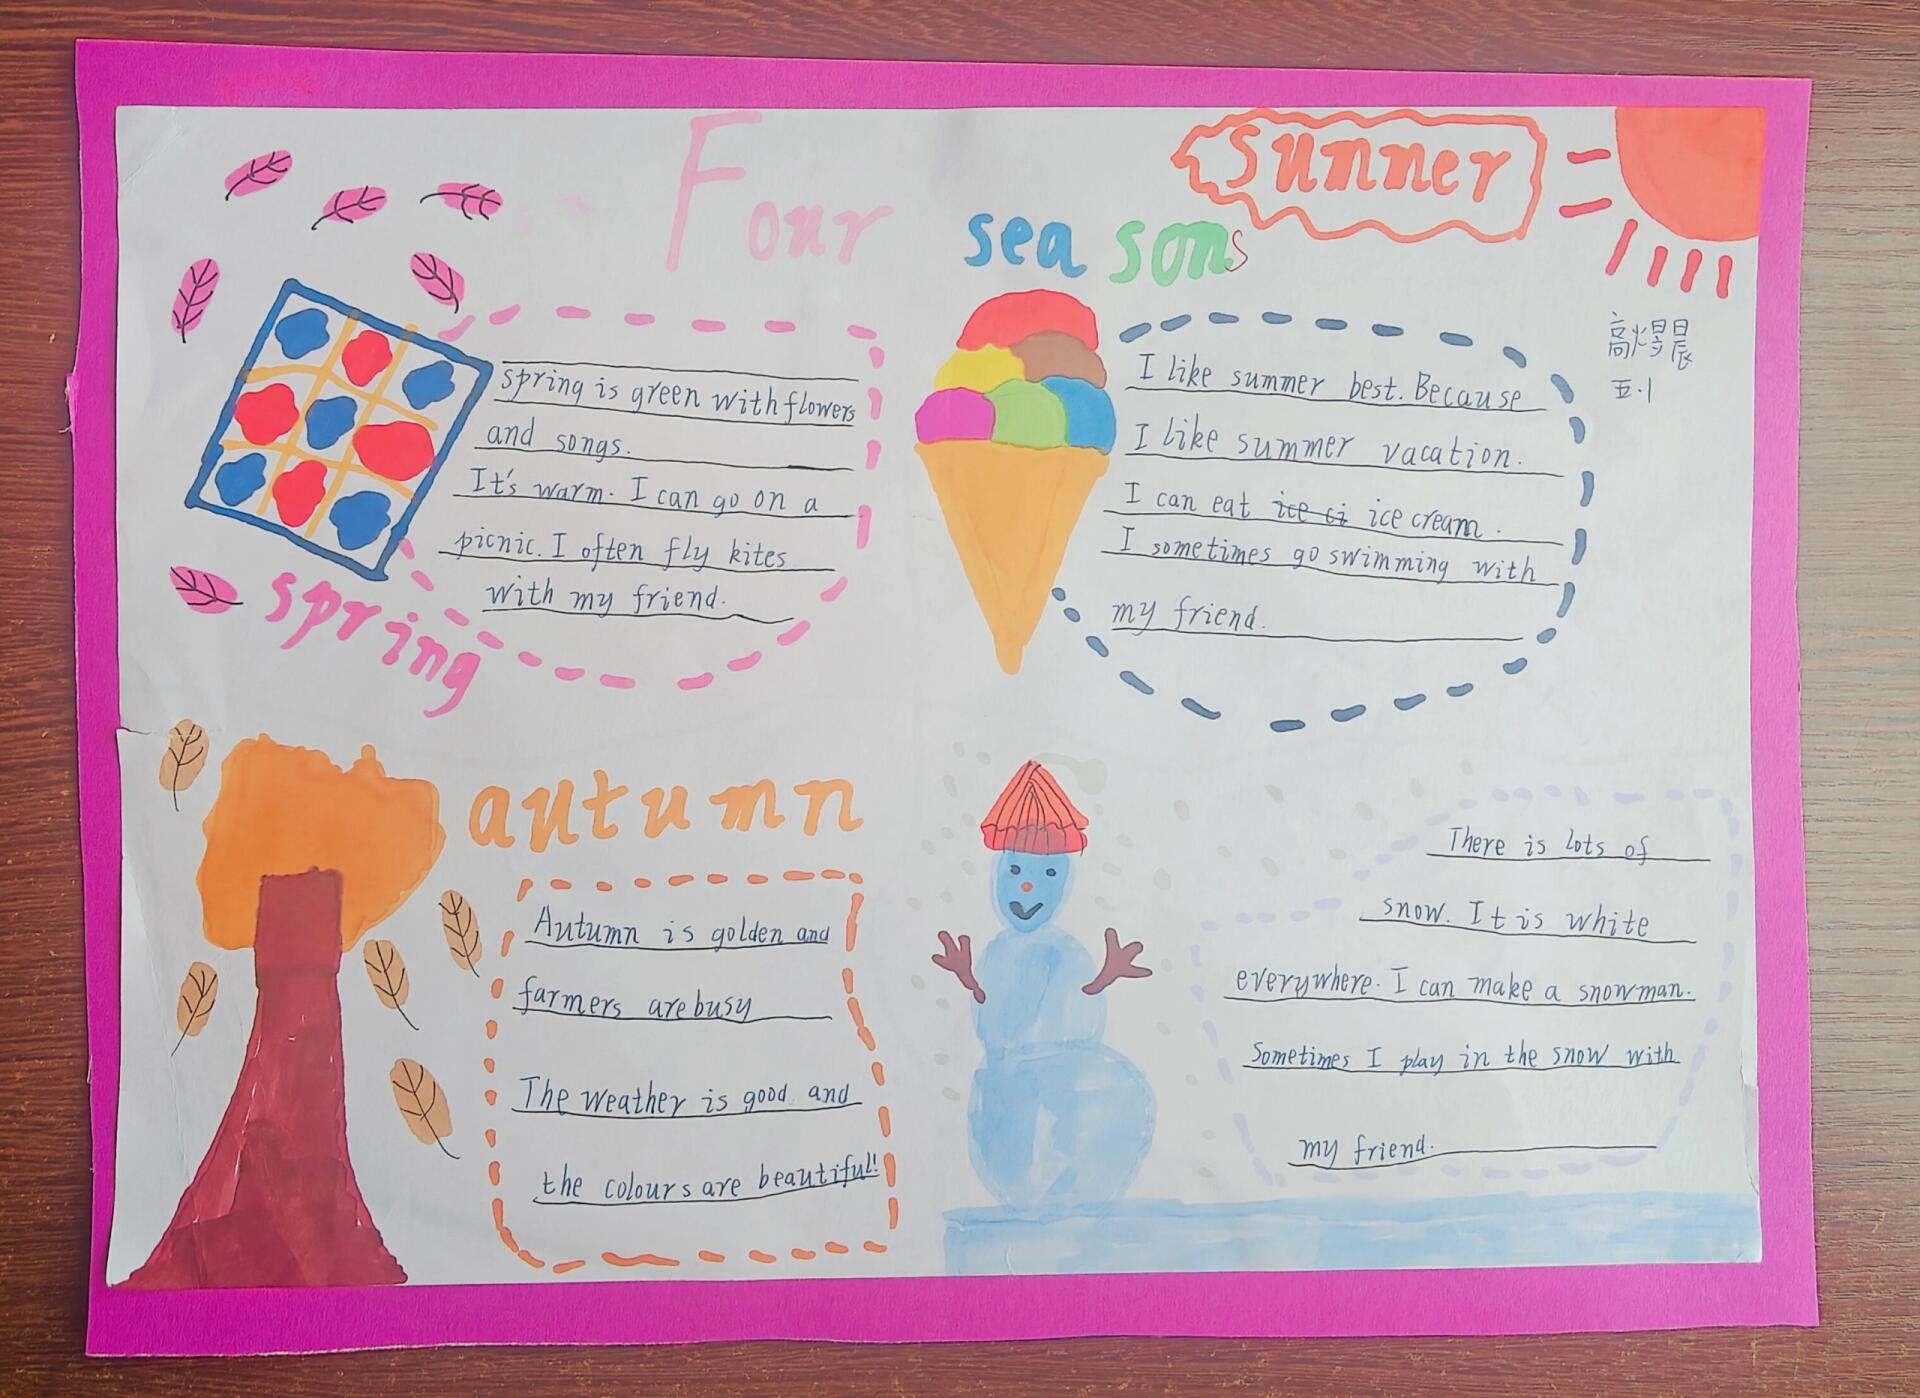 Four
seasons
sumner
spring is green with flowers
and songs.
It's warm. I can go on a
picnic. I often fly kites
with my friend.
spring
I like summer best. Because
I like summer vacation.
I can eat ice ci ice cream.
I sometimes go swimming with
my friend.
五.1
autumn
Autumn is golden and
farmers are busy
The weather is good and
the colours are beautiful!
There is lots of
snow. It is white
everywhere. I can make a snowman.
Sometimes I play in the snow with
my friend.